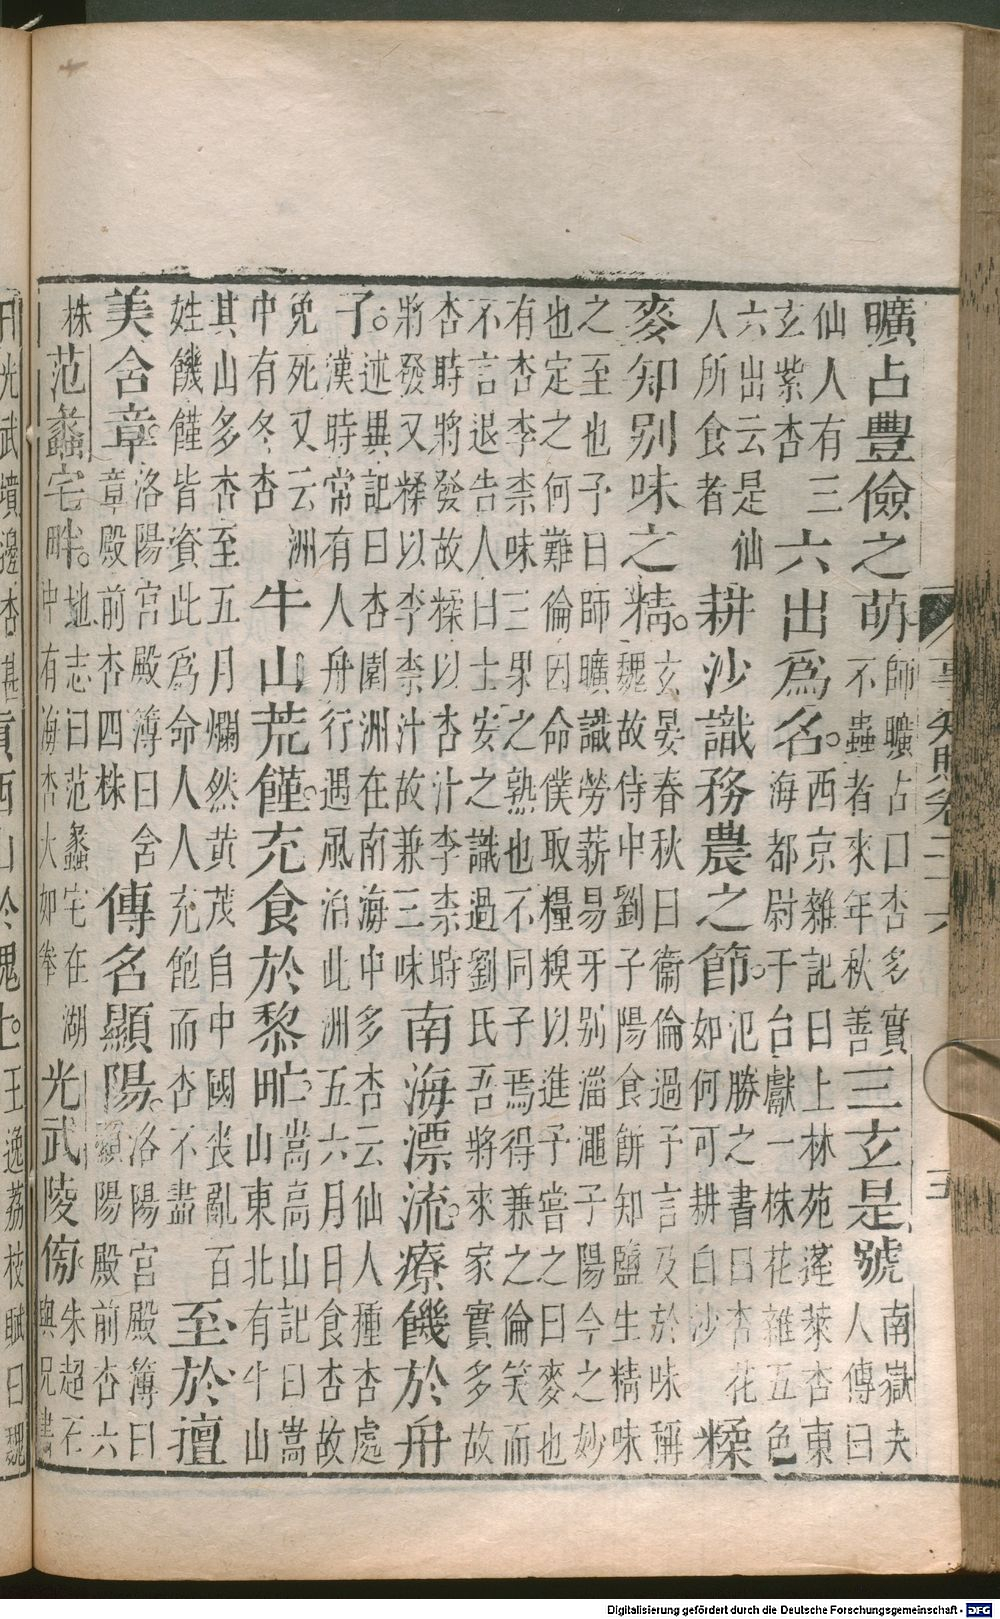 曠占豐儉之萌
師曠占曰杏多實
不蟲者來年秋善
三玄是號
南嶽夫
人傳曰
仙人有三
玄紫杏
六出爲名。
西京雜記曰上林苑蓬萊杏東
海都尉于台獻一株花雜五色
六出云是仙
人所食者
耕沙識務農之節。
氾勝之書曰杏花
如何可耕白沙
糅
麥知別味之精。
玄晏春秋曰衞倫過予言及於味稱
魏故侍中劉子陽食餅知鹽生精味
之至也予曰師曠識勞薪易牙別淄澠子陽今之妙
也定之何難倫因命僕取糧糗以進予嘗之曰麥也
有杏李柰味三果之熟也不同子焉得兼之倫笑而
不言退告人曰士安之識過劉氏吾將來家實多故
杏時將發故糅以杏汁李柰時
將發又糅以李柰汁故兼三味
南海漂流。療饑於舟
了。
述異記曰杏園洲在南海中多杏云仙人種杏處
漢時常有人舟行遇風泊此洲五六月日食杏故
免死又云洲
中有冬杏
牛山荒饉。充食於黎甿。
嵩高山記曰嵩
山東北有牛山
其山多杏至五月爛然黃茂自中國喪亂百
姓饑饉皆資此爲命人人充飽而杏不盡
至於擅
美含章。
洛陽宮殿簿曰含
章殿前杏四株
傳名顯陽。
洛陽宮殿簿曰
顯陽殿前杏六
株
范蠡宅畔。
地志曰范蠡宅在湖
中有海杏大如拳
光武陵傍。
朱超石
與兄書
王逸荔枝賦曰魏
Digitalisierung gefördert durch die Deutsche Forschungsgemeinschaft - DFG